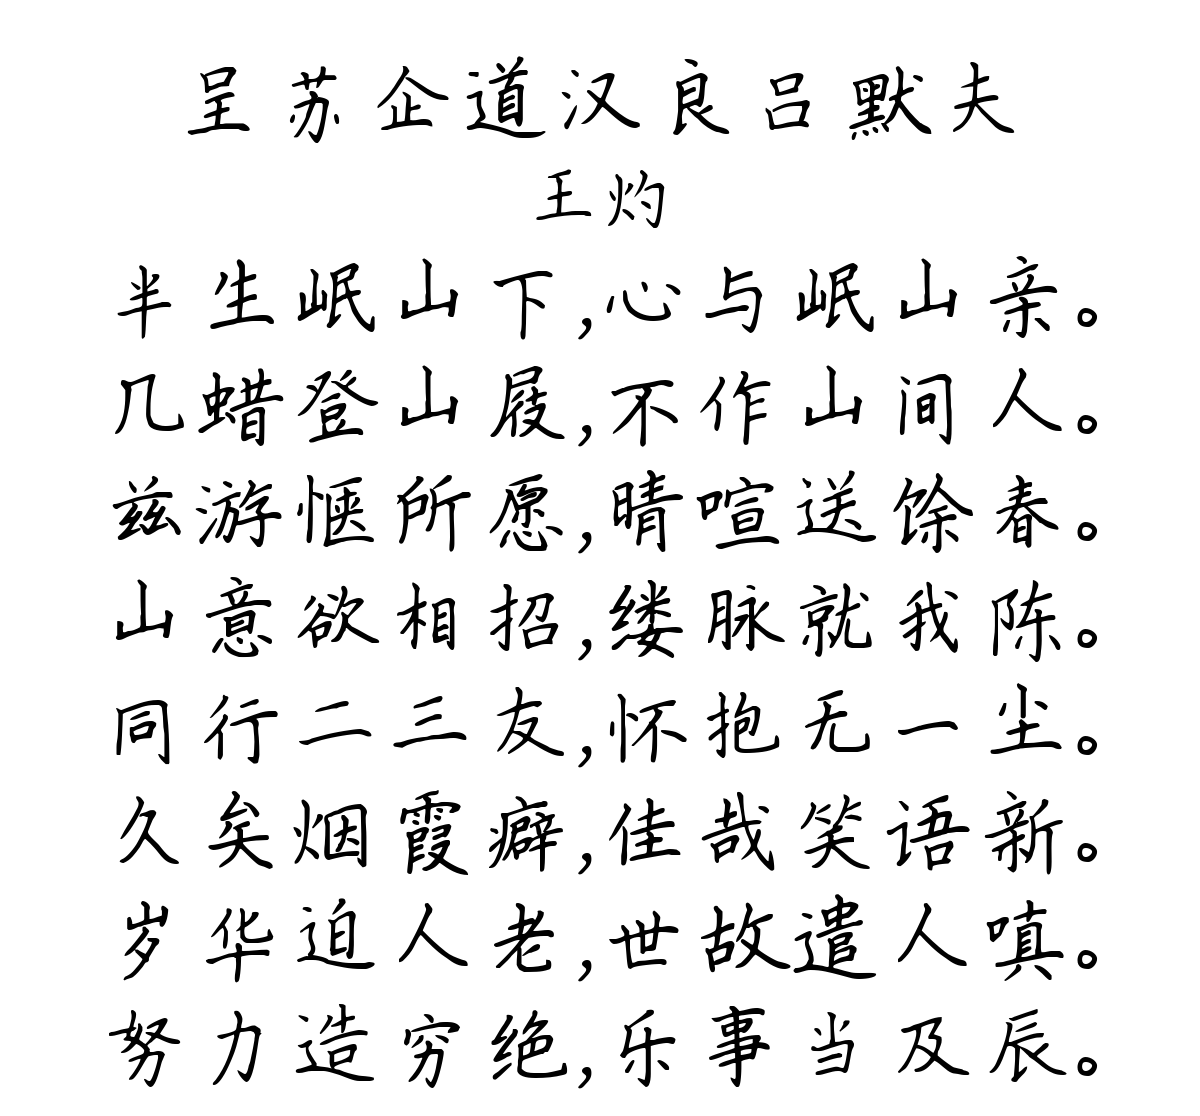 呈苏企道汉良吕默夫
王灼
半生岷山下,心与岷山亲。
几蜡登山屐,不作山间人。
兹游惬所愿,晴喧送馀春。
山意欲相招,缕脉就我陈。
同行二三友,怀抱无一尘。
久矣烟霞癖,佳哉笑语新。
岁华迫人老,世故遣人嗔。
努力造穷绝,乐事当及辰。